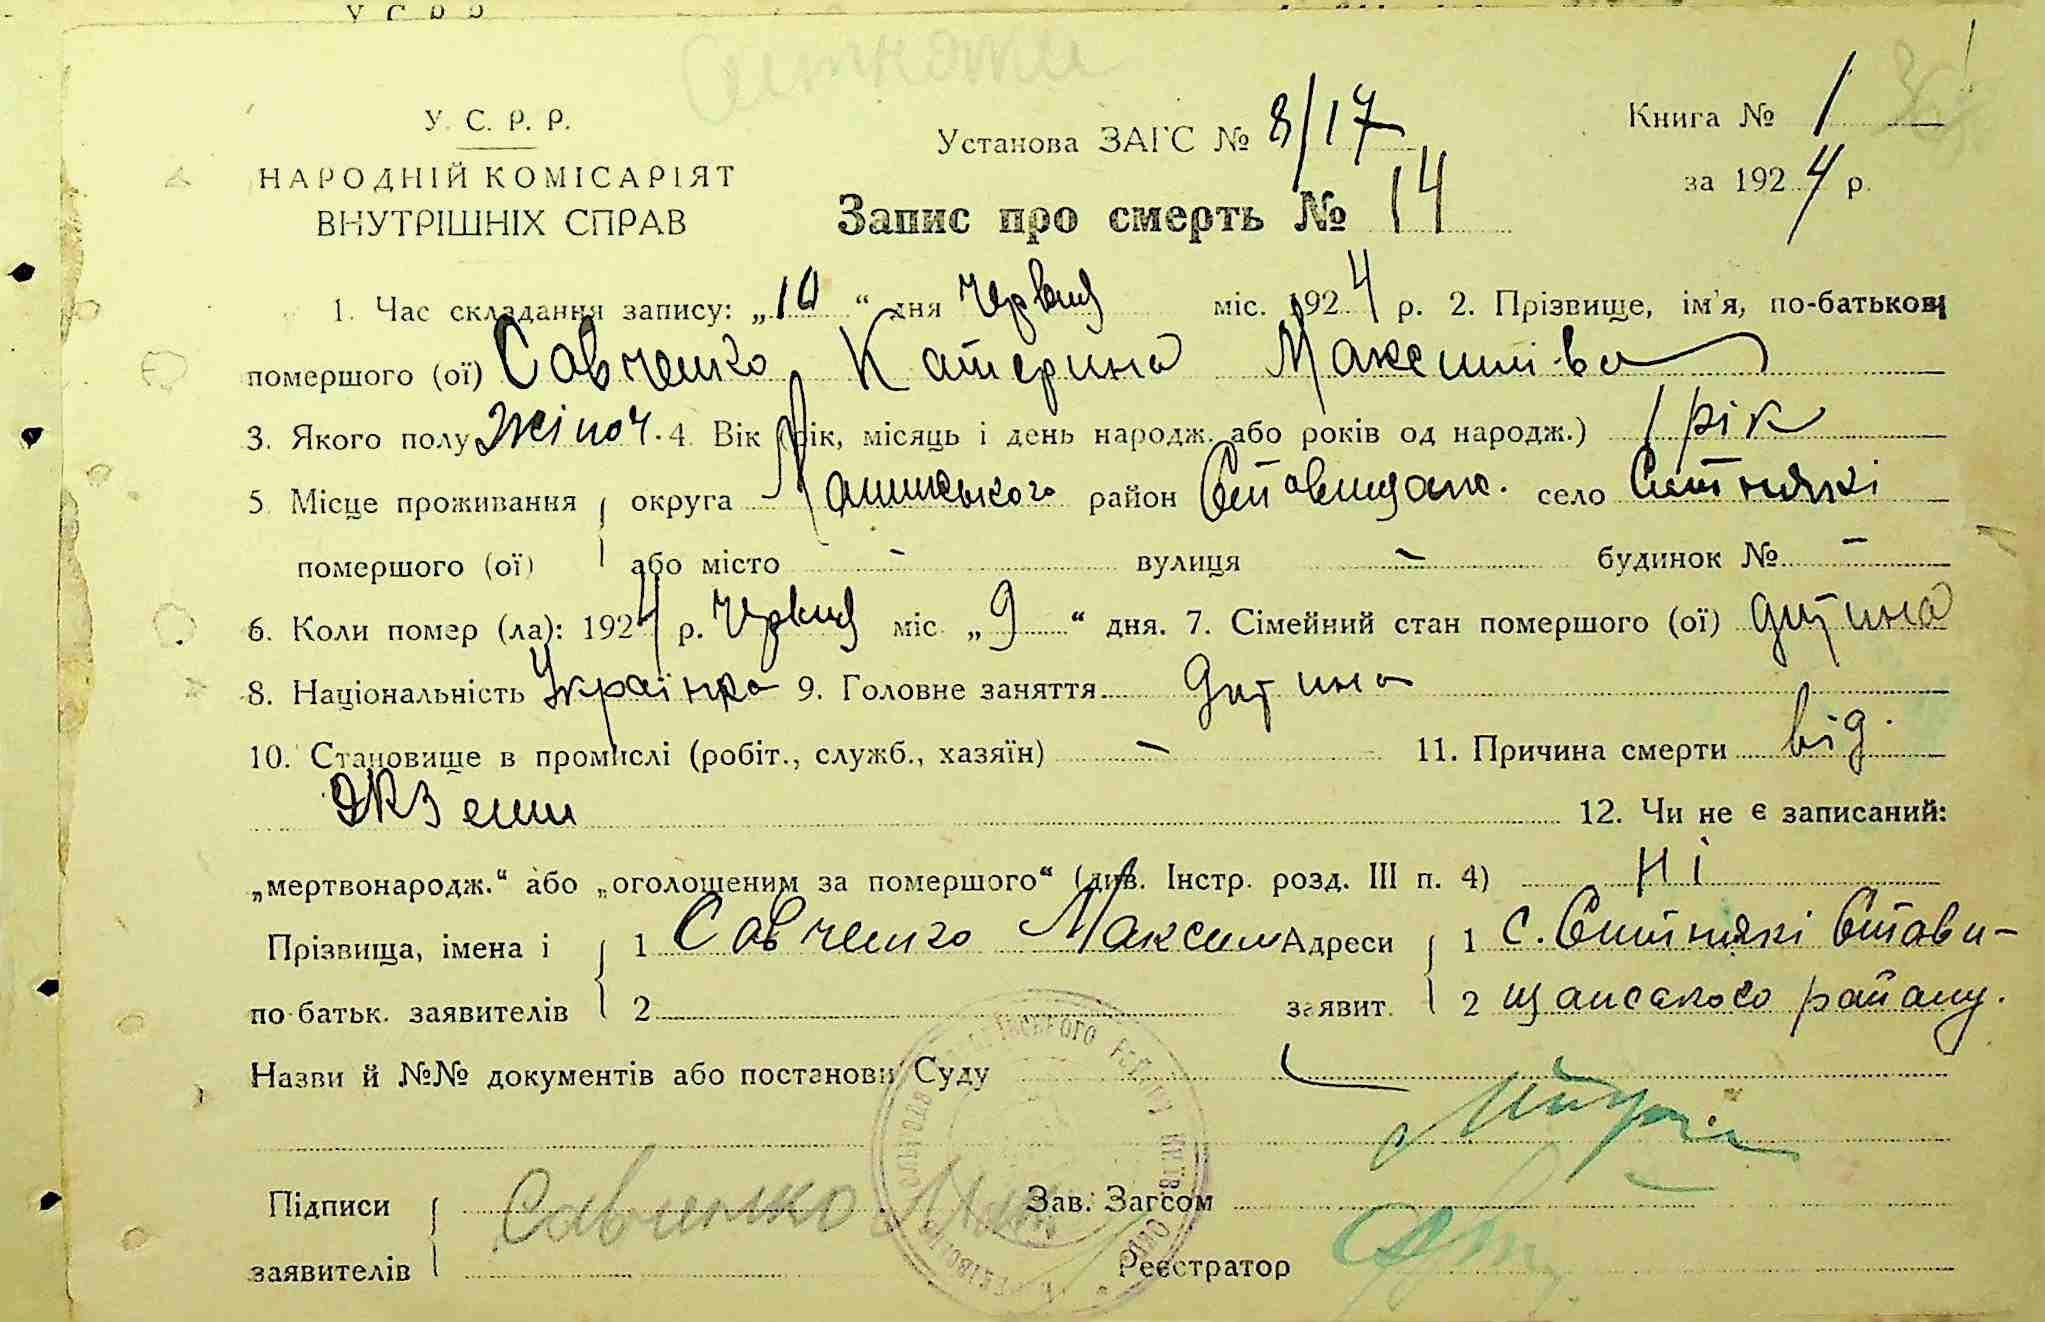 У. С. Р. Р.
Ситняки
У. С. Р. Р.
НАРОДНІЙ КОМІСАРІЯТ
ВНУТРІШНІХ СПРАВ
Установа ЗАГС № 8/17
Запис про смерть № 14
Книга № 1
за 1924 р.
1. Час складання запису: „10“ дня червня міс. 1924 р. 2. Прізвище, ім'я, по-батькові
помершого (ої) Савченко Катерина Максимівна
3. Якого полу жіноч. 4. Вік (рік, місяць і день народж. або років од народж.) 1 рік
5. Місце проживання округа район Ставищанс. село Ситнякі
помершого (ої) або місто – вулиця – будинок № –
6. Коли помер (ла): 1924 р. червня міс. „9“ дня. 7. Сімейний стан помершого (ої) дитина
8. Національність Українка 9. Головне заняття дитина
10. Становище в промислі (робіт., служб., хазяїн) – 11. Причина смерти від
экземи
12. Чи не є записаний:
„мертвонародж.“ або „оголошеним за помершого“ (див. Інстр. розд. III п. 4) ні
Прізвища, імена і 1 Савченко Максим Адреси 1 с. Ситнякі Стави-
по батьк. заявителів 2 заявит. 2 щанського району.
Назви й №№ документів або постанови Суду
Підписи Савченко Зав. Загсом
заявителів Реєстратор